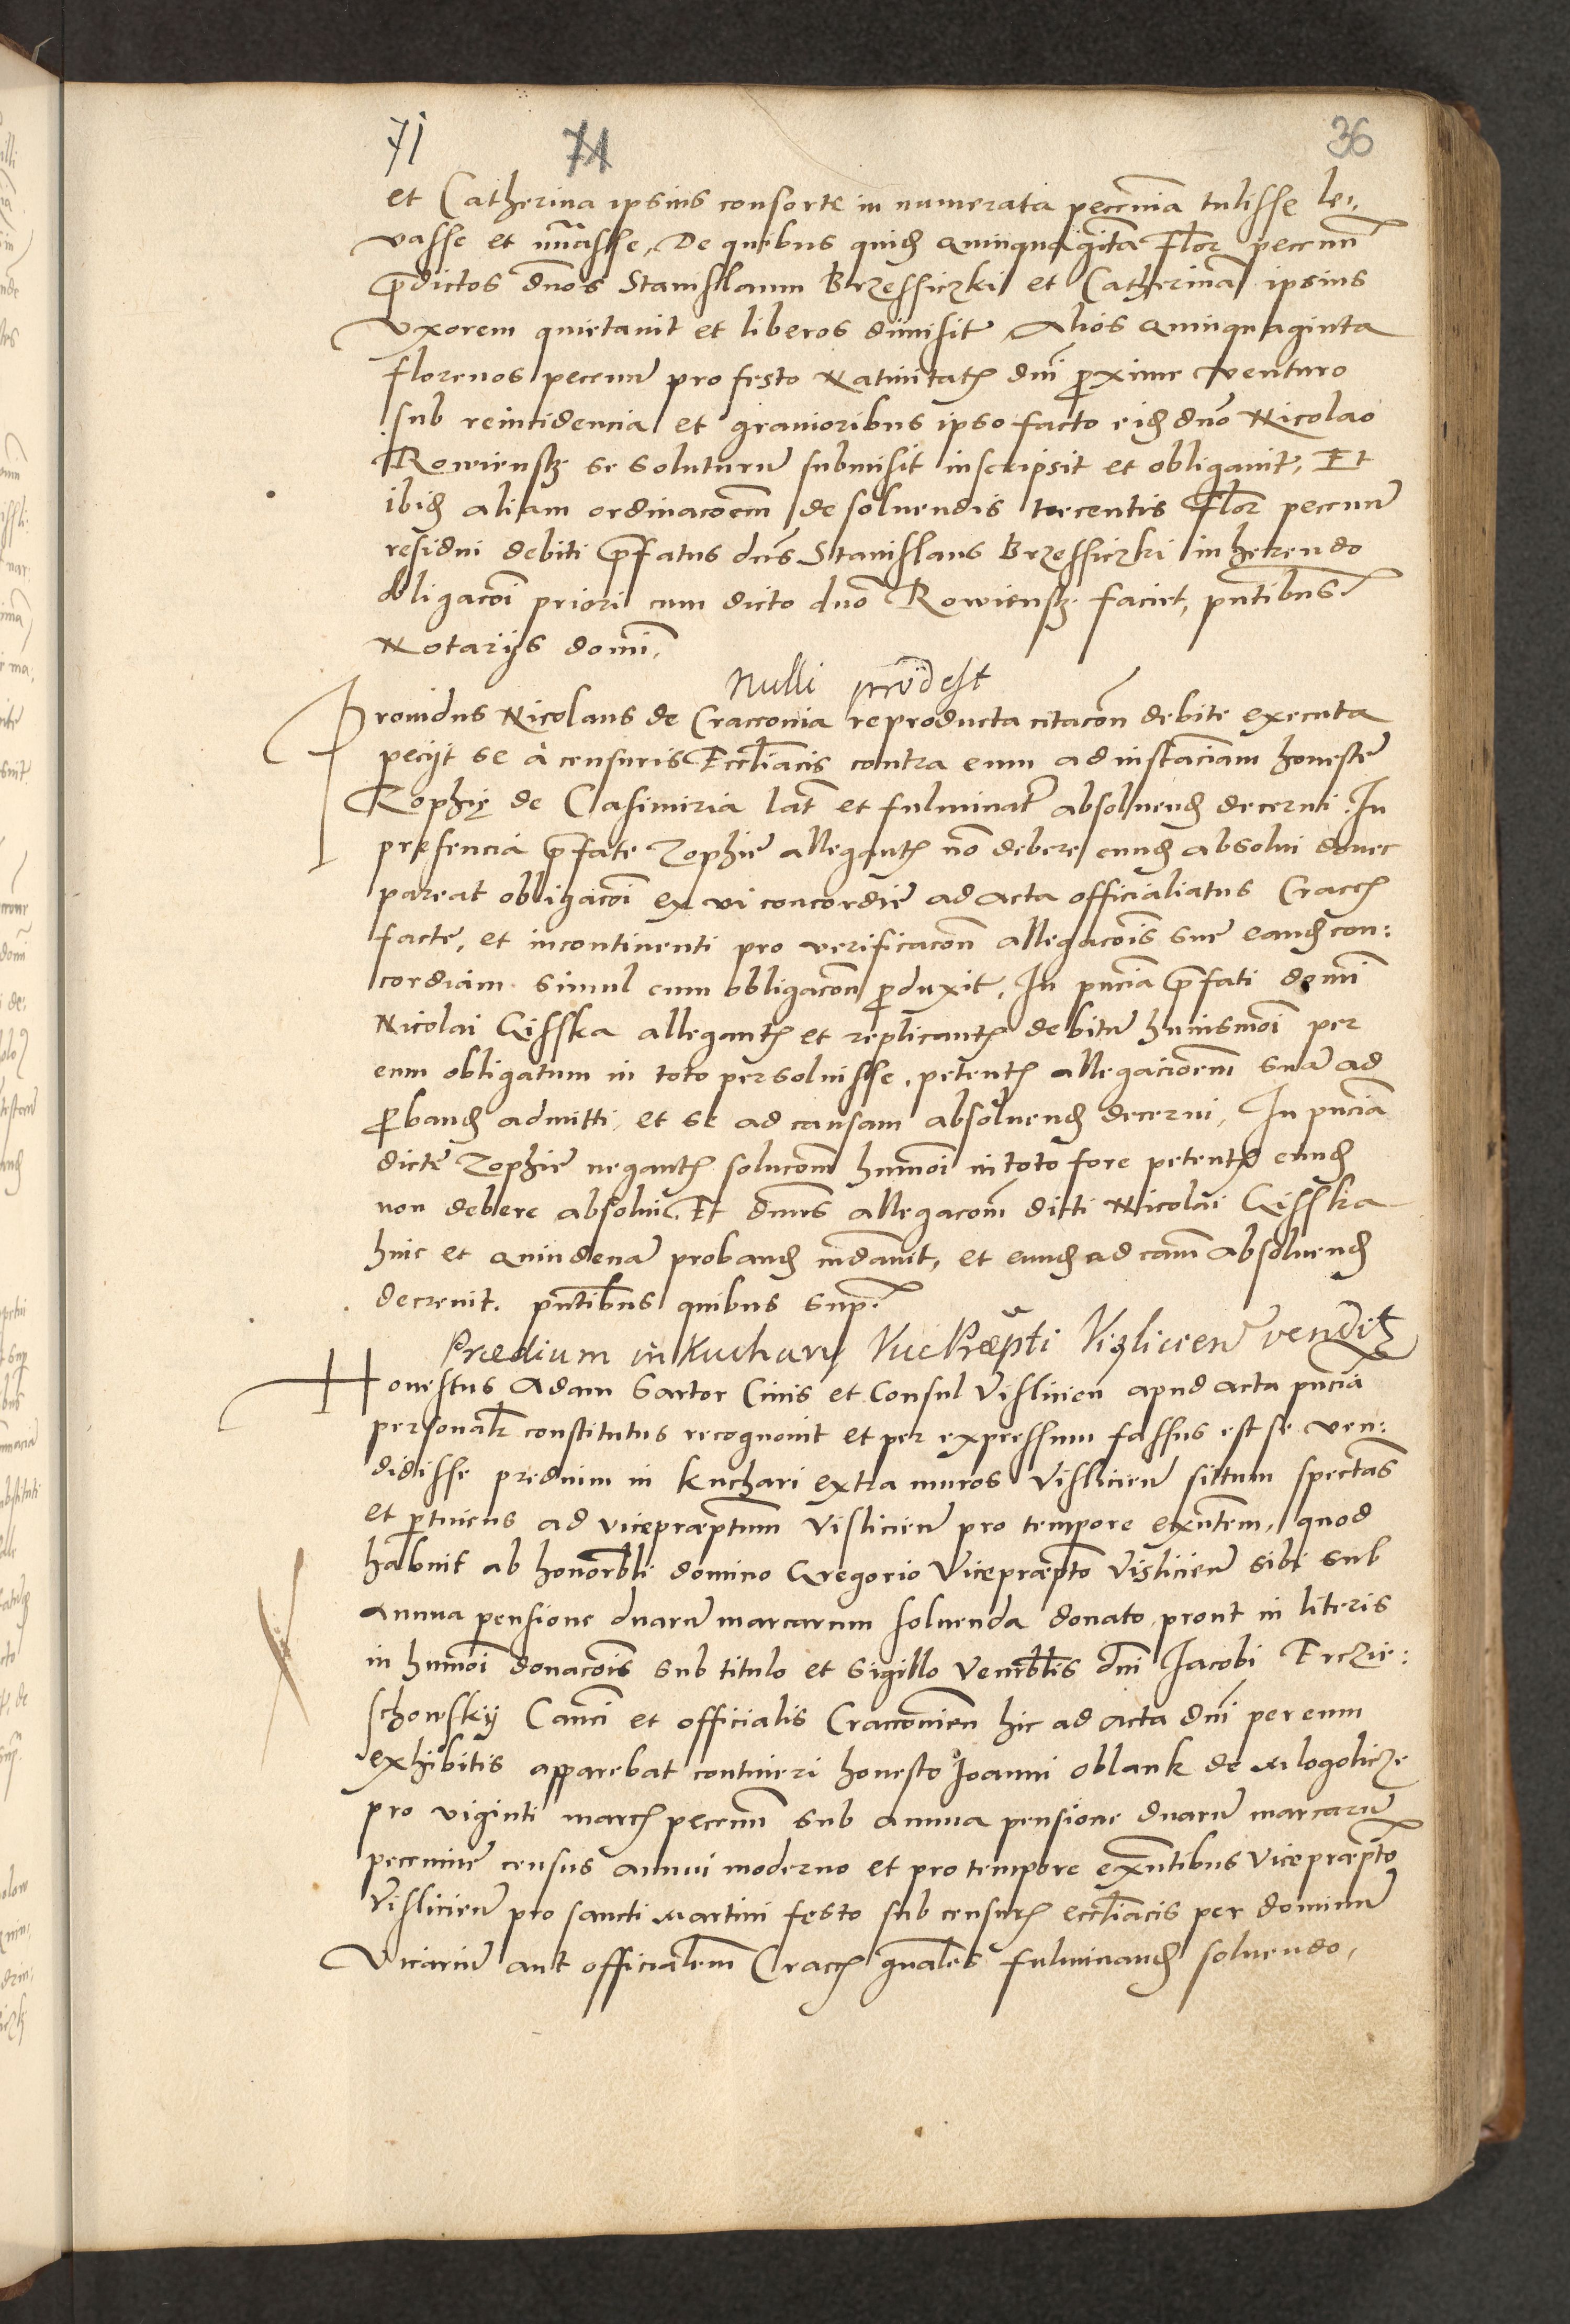 71 74 36
et Catherina ipsius consorte in numerata peccunia tulisse le-
vasse et nu͞asse, De quibus quid quinquaginta Flor peccun̄
p̄dictos dn̄os Stanislaum Brzessiczki et Catherinā ipsius
Vxorem quietauit et liberos dimisit Alios quinquaginta
florenos peccun̄ pro festo Natiuitatis dn̄i proxime venturo
sub reincidencia et grauioribus ipso facto eid dn̄o Nicolao
Rowiensky se soluturū submisit inscripsit et obligauit, Et
ibid aliam ordinacoēm de soluendis trecentis flor peccun̄
residui debiti p̄fatus dn̄s Stanislaus Brzessiczki inherendo
obligacōi priori cum dicto dn̄o Rowiensky faciet, pn̄tibus
Notarijs domi.
Nulli prodest
Prouidus Nicolaus de Craccouia reproducta citacōn debite executa
peciit se à censuris Eccliacis contra eum ad instanciam honestę
Zophię de Casimiria lat et fulminat absoluend decerni. In
presencia p̄fate Zophie allegantis nō debere eund absolui donec
pareat obligacōi ex vi concordie ad acta officialiatus Cracc
facte, et incontinenti pro verificacōn allegacōis sue eand con:
cordiam simul cum obligacōn produxit, In pn̄cia p̄fati domi
Nicolai Gisska allegantis et replicantis debitū huiusmōi per
eum obligatum in toto persoluisse, petentis allegacioēm suā ad
proband admitti, et se ad causam absoluend decerni, In pn̄cia
dicte Zophie negantis solucōm humōi in toto fore petentis eund
non debere absolui. Et dn̄us allegacoēm dicti Nicolai Gisska
huic et quindenā proband indauit, et eund ad cām absoluend
decreuit. pn̄tibus quibus supr.
Prædium in Kuchary Vicepræpti Visliciēn vendit
Honestus Adam Sartor Ciuis et Consul Visliciēn apud acta pn̄cia
personalr constitutus recognouit et per expressum fassus est se ven:
didisse predium in Kuchari extra muros Visliciēn situm spectans
et ptinens ad vicepræptum Visliciēn pro tempore exn̄tem, quod
habuit ab honorbli domino Gregorio Vicepræpto Visliciēn sibi sub
annua pensione duarū marcarum soluenda donato prout in literis
in humōi donacōis sub titulo et sigillo Venerblis dn̄i Jacobi Erczie:
schowskij Cañci et officialis Craccouiēn hic ad acta dn̄i per eum
exhibitis apparebat contineri honesto Joanni oblank de Mlogolicze
pro viginti marcis peccun̄ sub annua pensione duarū marcarū
peccunie census annui moderno et pro tempore exn̄tibus Vicepræpto
Visliciēn pro sancti Martini festo sub censuris eccliacis per dominū
Vicariū aut officialem Cracc gn̄ales fulminand soluendo,